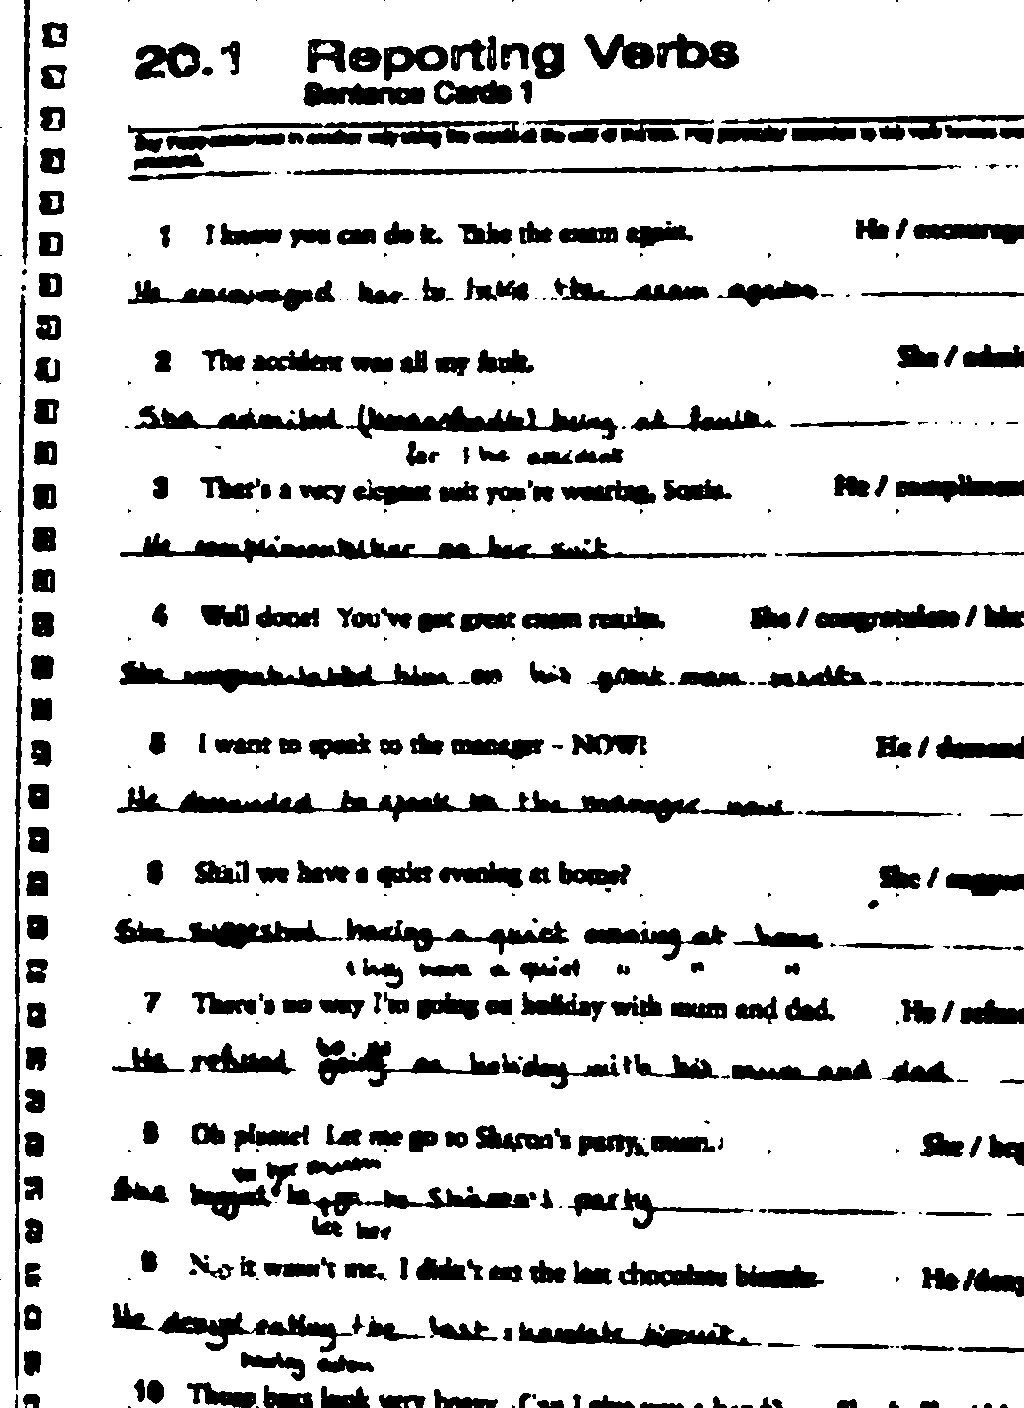 20.1 Reporting Verbs
Sentence Cards 1
1 I know you can do it. Take the exam again. He / encourage
He encouraged her to take the exam again
2 The accident was all my fault. She / admit
She admitted being at fault.
for the accident
3 That's a very elegant suit you're wearing, Sonia. He / compliment
He complimented her on her suit
4 Well done! You've got great exam results. She / congratulate / him
She congratulated him on his great exam results
5 I want to speak to the manager - NOW! He / demand
He demanded to speak to the manager now
6 Shall we have a quiet evening at home? She / suggest
She suggested having a quiet evening at home
they have a quiet " " "
7 There's no way I'm going on holiday with mum and dad. He / refuse
to go
He refused going on holiday with his mum and dad
8 Oh please! Let me go to Sharon's party, mum. She / beg
her mum
She begged to go to Sharon's party
let her
9 No, it wasn't me. I didn't eat the last chocolate biscuit. He / deny
He denyed eating the last chocolate biscuit.
having eaten
10 Those bags look very heavy. Can I give you a hand?